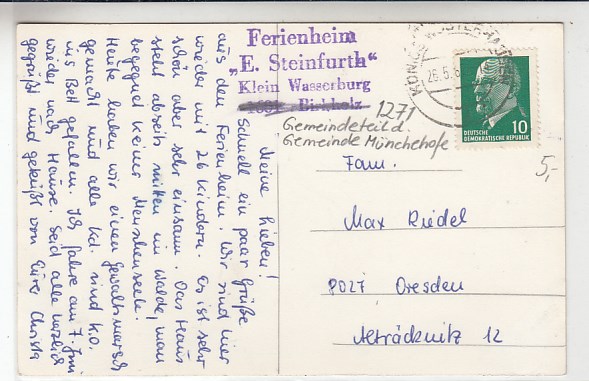 Ferienheim
„E. Steinfurth“
Klein Wasserburg
Birkholz
1271
Gemeindeteil d.
Gemeinde Münchehofe
KÖNIGS WUSTERHAUSEN
26.5.6
10
DEUTSCHE
DEMOKRATISCHE REPUBLIK
5,-
Fam.
Max Riedel
8027 Dresden
Alträcknitz 12
Meine Lieben!
Schnell ein paar Grüße
aus dem Ferienheim. Wir sind hier
wieder mit 26 Kindern. Es ist sehr
schön aber sehr einsam. Das Haus
steht abseits mitten im Walde, man
begegnet keiner Menschenseele.
Heute haben wir einen Gewaltmarsch
gemacht und alle Kd. sind k.o.
ins Bett gefallen. Ich fahre am 7. Juni
wieder nach Hause. Seid alle herzlich
gegrüßt und geküßt von Eurer Christa